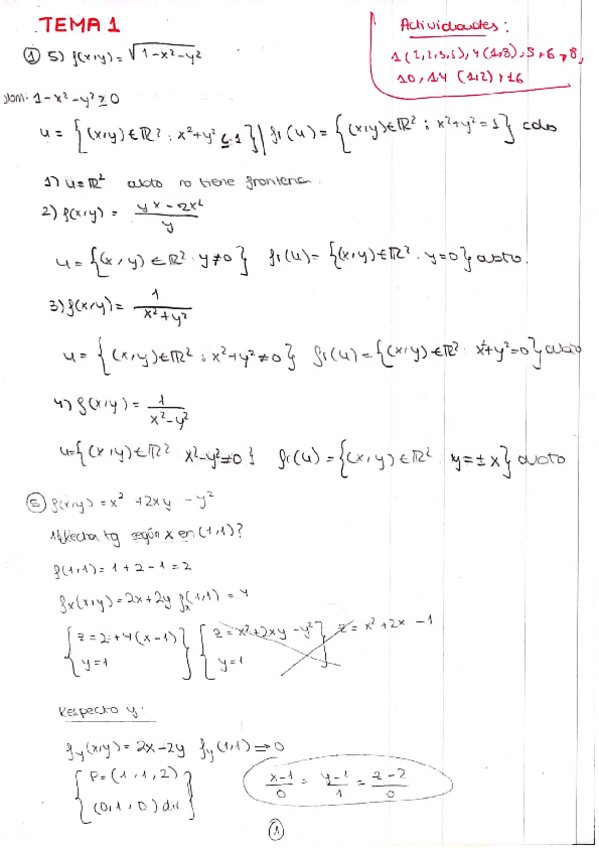 TEMA 1
Actividades:
1 (1,2,3,5), 4 (1,3), 5, 6, 8,
10, 14 (1,2), 16
① 5) f(x,y) = √(1-x²-y²)
Dom. 1-x²-y² ≥ 0
U = {(x,y) ∈ ℝ² : x²+y² ≤ 1} | fr(U) = {(x,y) ∈ ℝ² : x²+y² = 1}
1) U = ℝ² no tiene frontera.
2) f(x,y) = (yx - 2x²)/y
U = {(x,y) ∈ ℝ² . y≠0} fr(U) = {(x,y) ∈ ℝ² . y=0}
3) f(x,y) = 1/(x²+y²)
U = {(x,y) ∈ ℝ² : x²+y² ≠ 0} fr(U) = {(x,y) ∈ ℝ² x²+y² = 0}
4) f(x,y) = 1/(x²-y²)
U = {(x,y) ∈ ℝ² x²-y² ≠ 0} fr(U) = {(x,y) ∈ ℝ² y = ± x}
⑤ f(x,y) = x² + 2xy - y²
Recta tg según x en (1,1)?
f(1,1) = 1 + 2 - 1 = 2
fx(x,y) = 2x + 2y fx(1,1) = 4
{z = 2 + 4(x-1)} {z = x² + 2xy - y²} z = x² + 2x - 1
{y = 1} {y = 1}
Respecto y:
fy(x,y) = 2x - 2y fy(1,1) = 0
{P = (1,1,2)
(0,1,0) dir} (x-1)/0 = (y-1)/1 = (z-2)/0
①